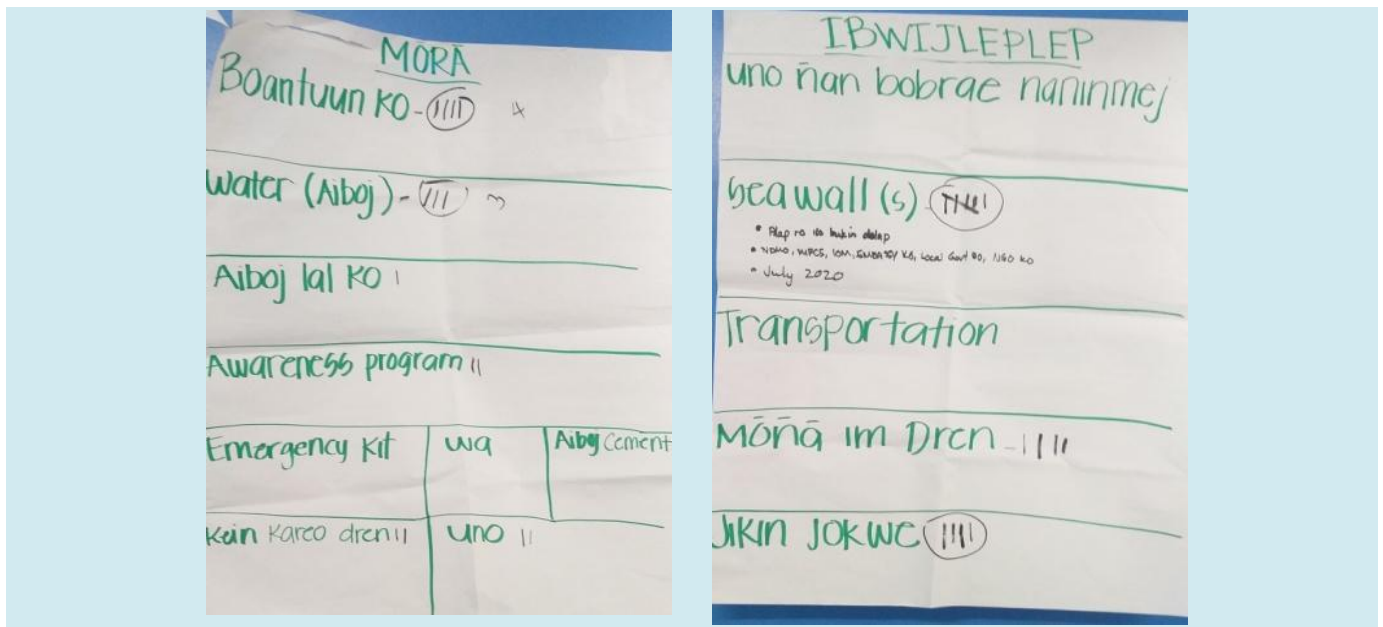 MŌRĀ
Boantuun KO - IIII 4
Water (Aiboj) - III 3
Aiboj lal KO I
Awareness program II
Emergency Kit
wa
Aiboj Cement
Kein Kareo dren II
uno II
IBWIJLEPLEP
uno n̄an bobrae naninmej
Seawall (s)
• NDMO, WPCS, IOM, EMBASSY KO, Local Govt KO, NGO ko
• July 2020
Transportation
Mōn̄ā im Dren - IIII
JIKIN JOKWE IIII